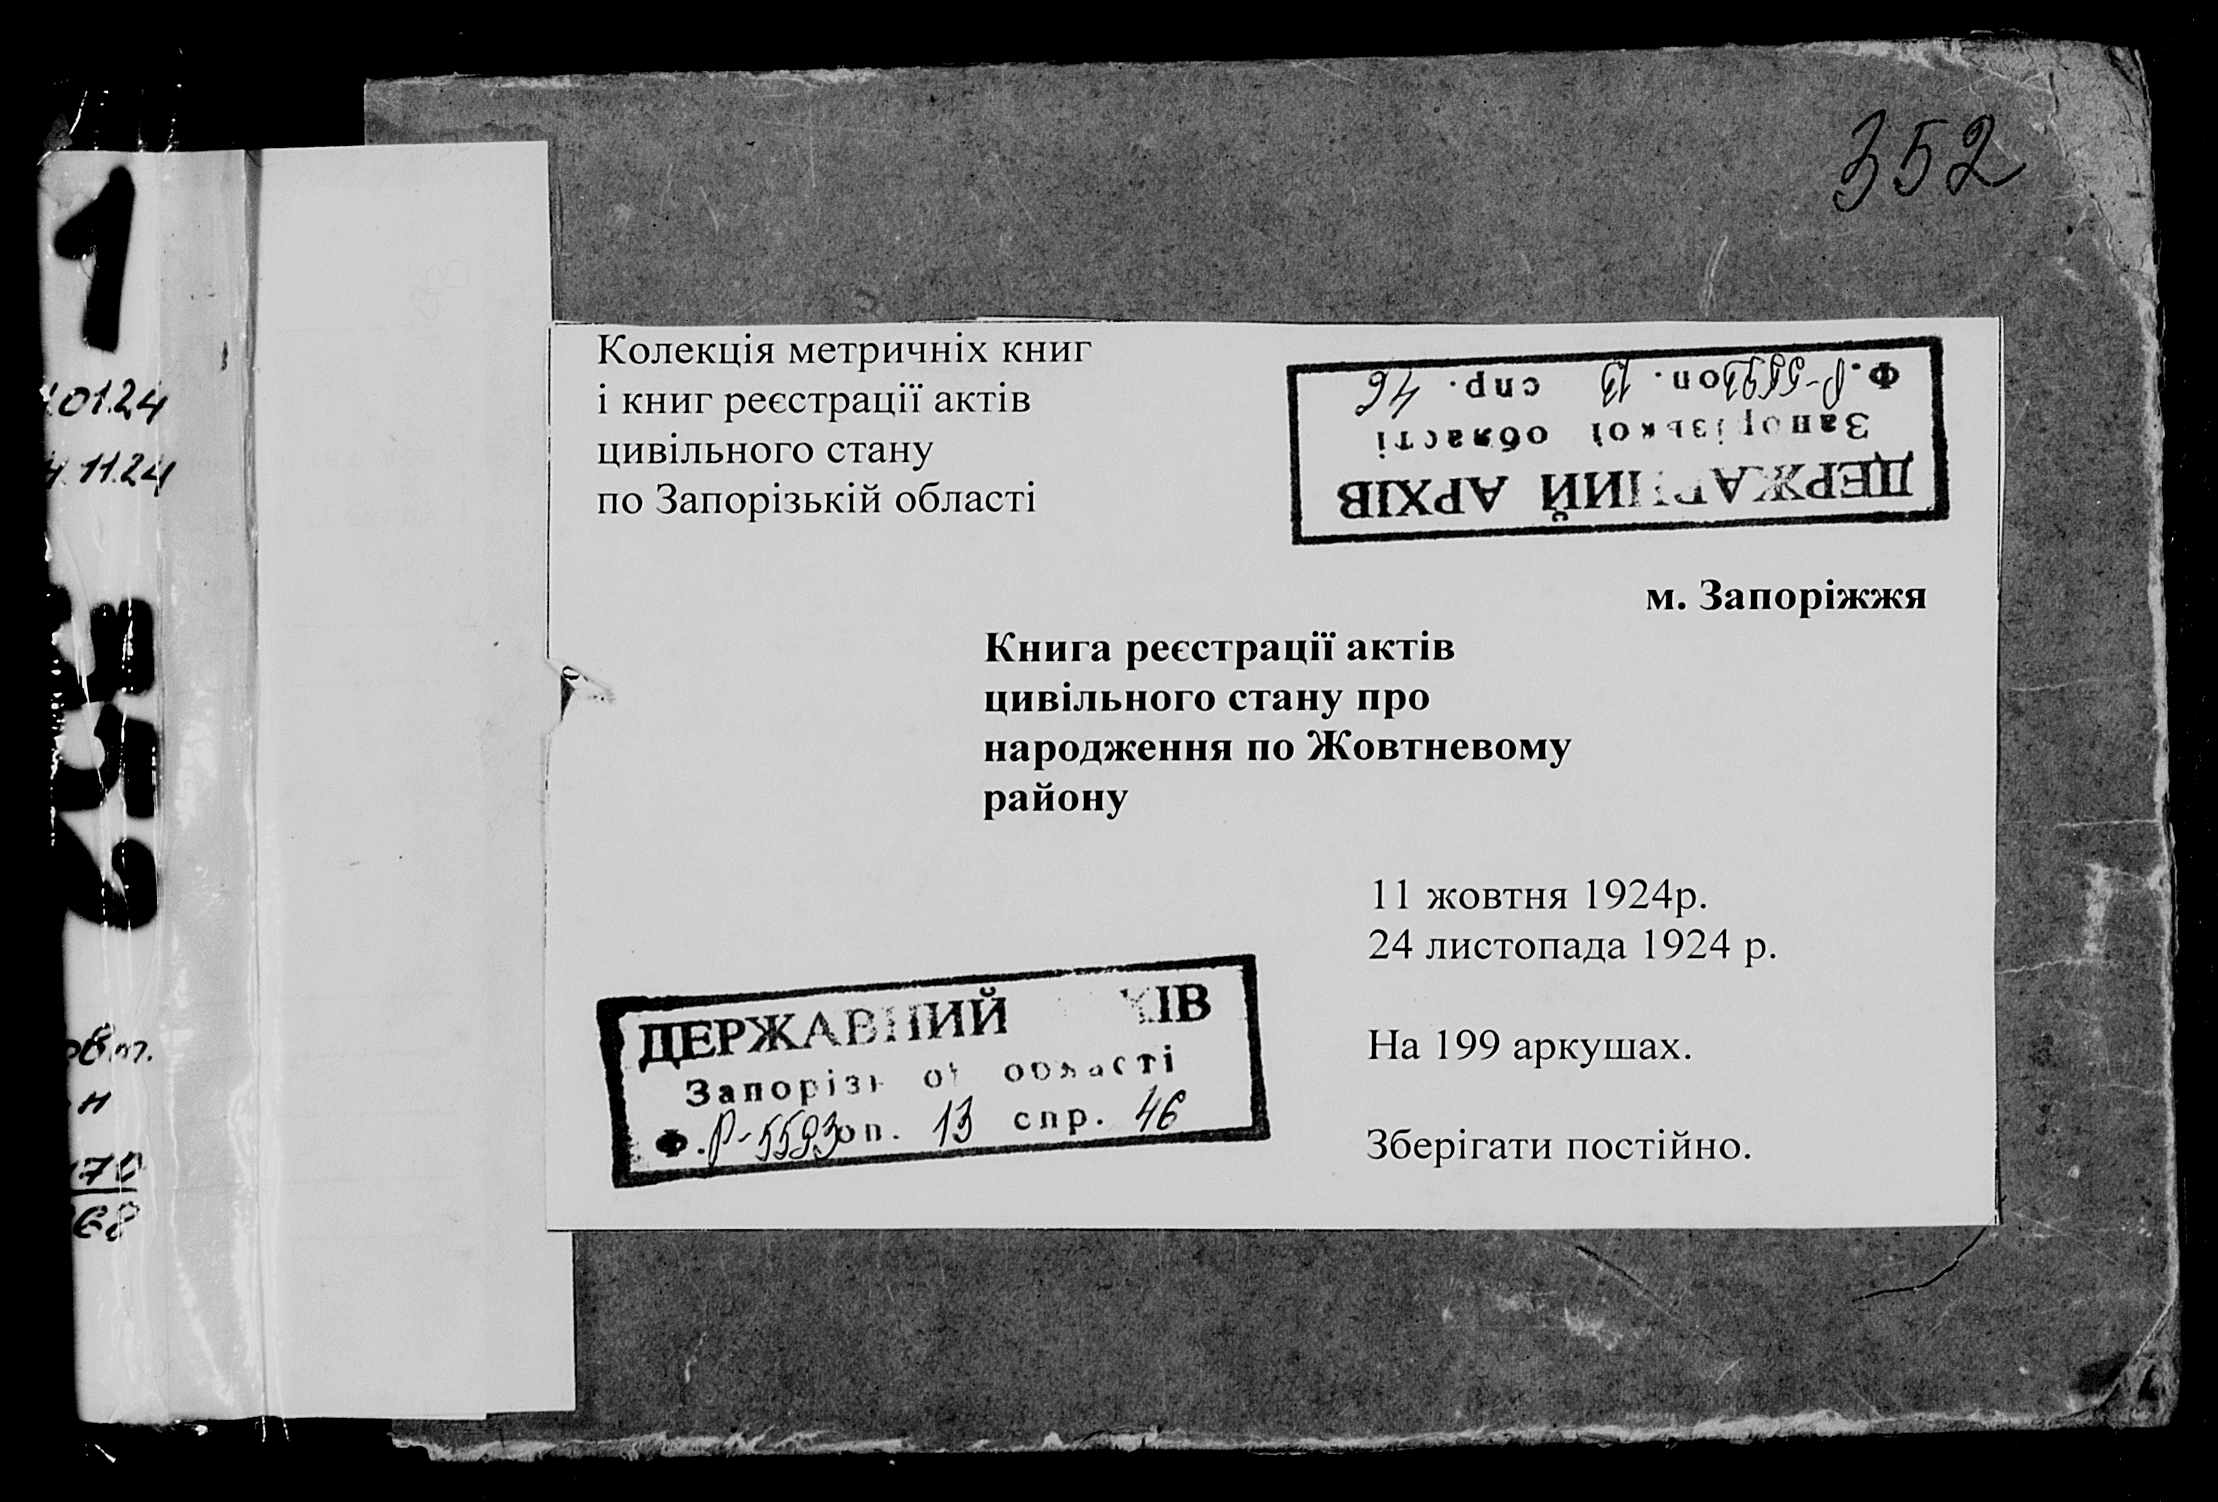 352
1
01.24
11.24
Колекція метричніх книг
і книг реєстрації актів
цивільного стану
по Запорізькій області
ДЕРЖАВНИЙ АРХІВ
Запорізької області
Ф. Р-5593 оп. 13 спр. 46
м. Запоріжжя
Книга реєстрації актів
цивільного стану про
народження по Жовтневому
району
11 жовтня 1924р.
24 листопада 1924 р.
На 199 аркушах.
Зберігати постійно.
ДЕРЖАВНИЙ ХІВ
Запорізь о області
Ф. Р-5593 оп. 13 спр. 46
н
170
68